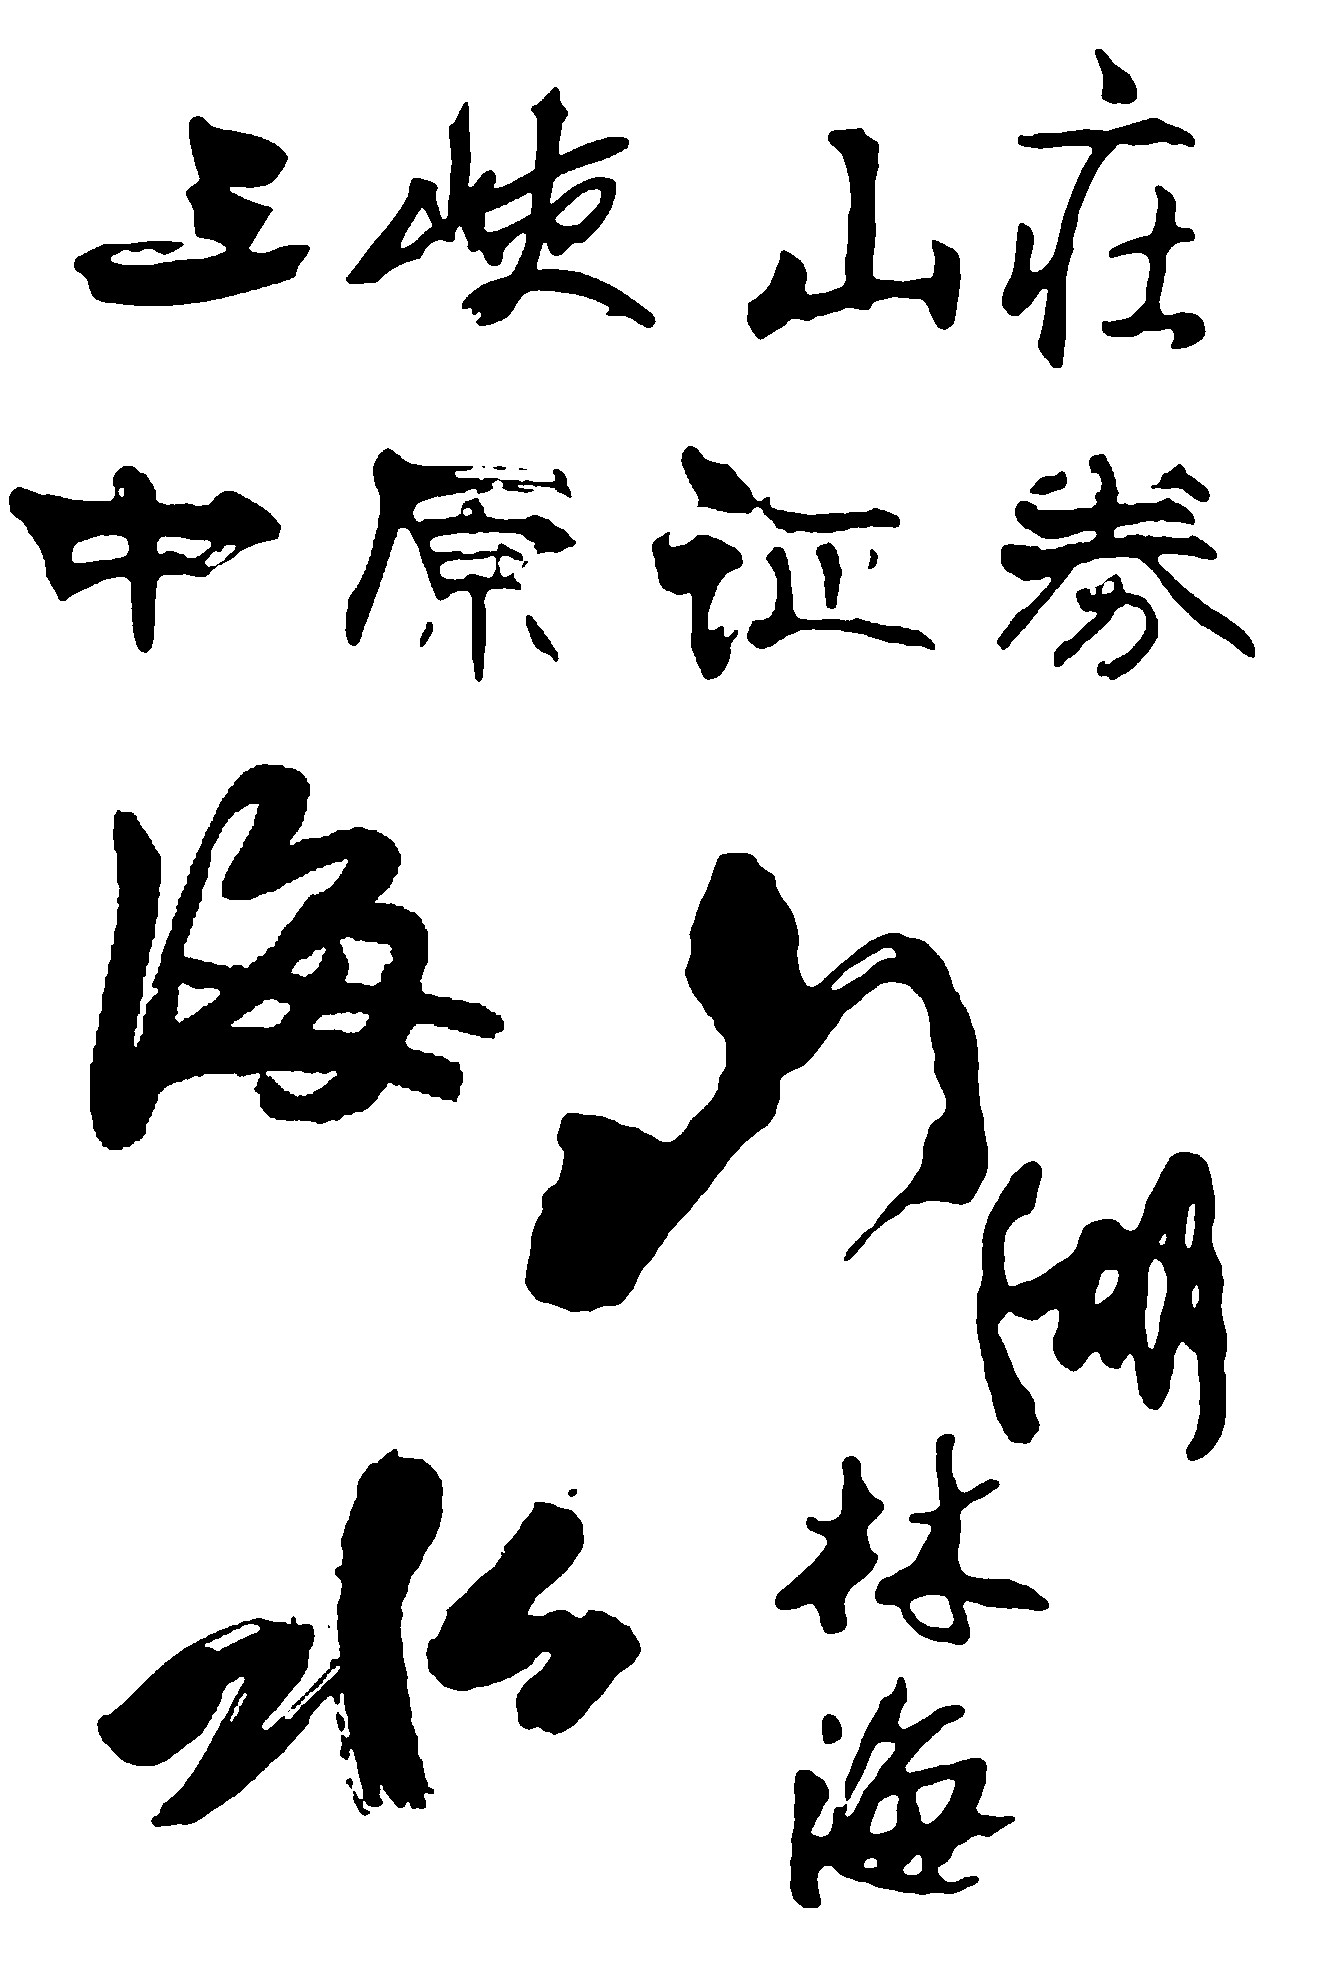 三峡山庄
中原证券
海
山
湖
水
林
海